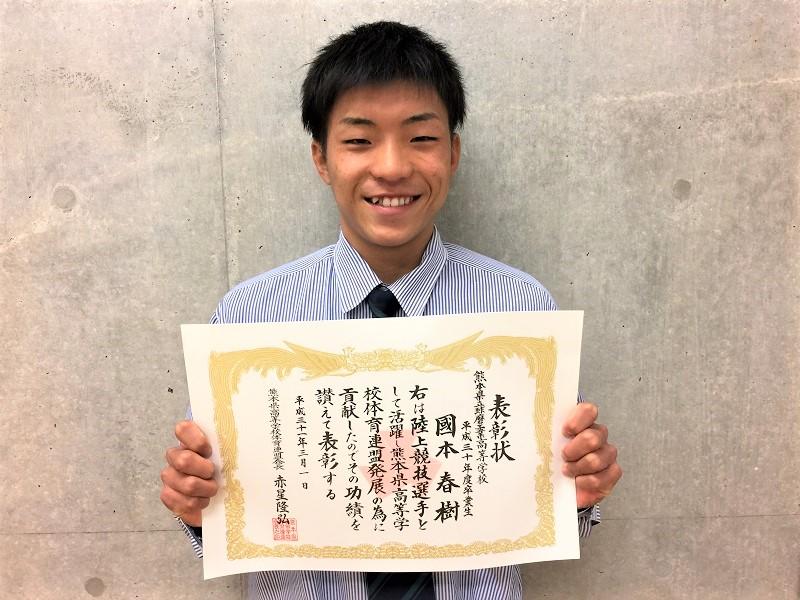 表彰状
熊本県立球磨工業高等学校
平成三十年度卒業生
國本春樹
右は陸上競技選手と
して活躍し熊本県高等学
校体育連盟発展の為に
貢献したのでその功績を
讃えて表彰する
平成三十一年三月一日
熊本県高等学校体育連盟会長 赤星隆弘